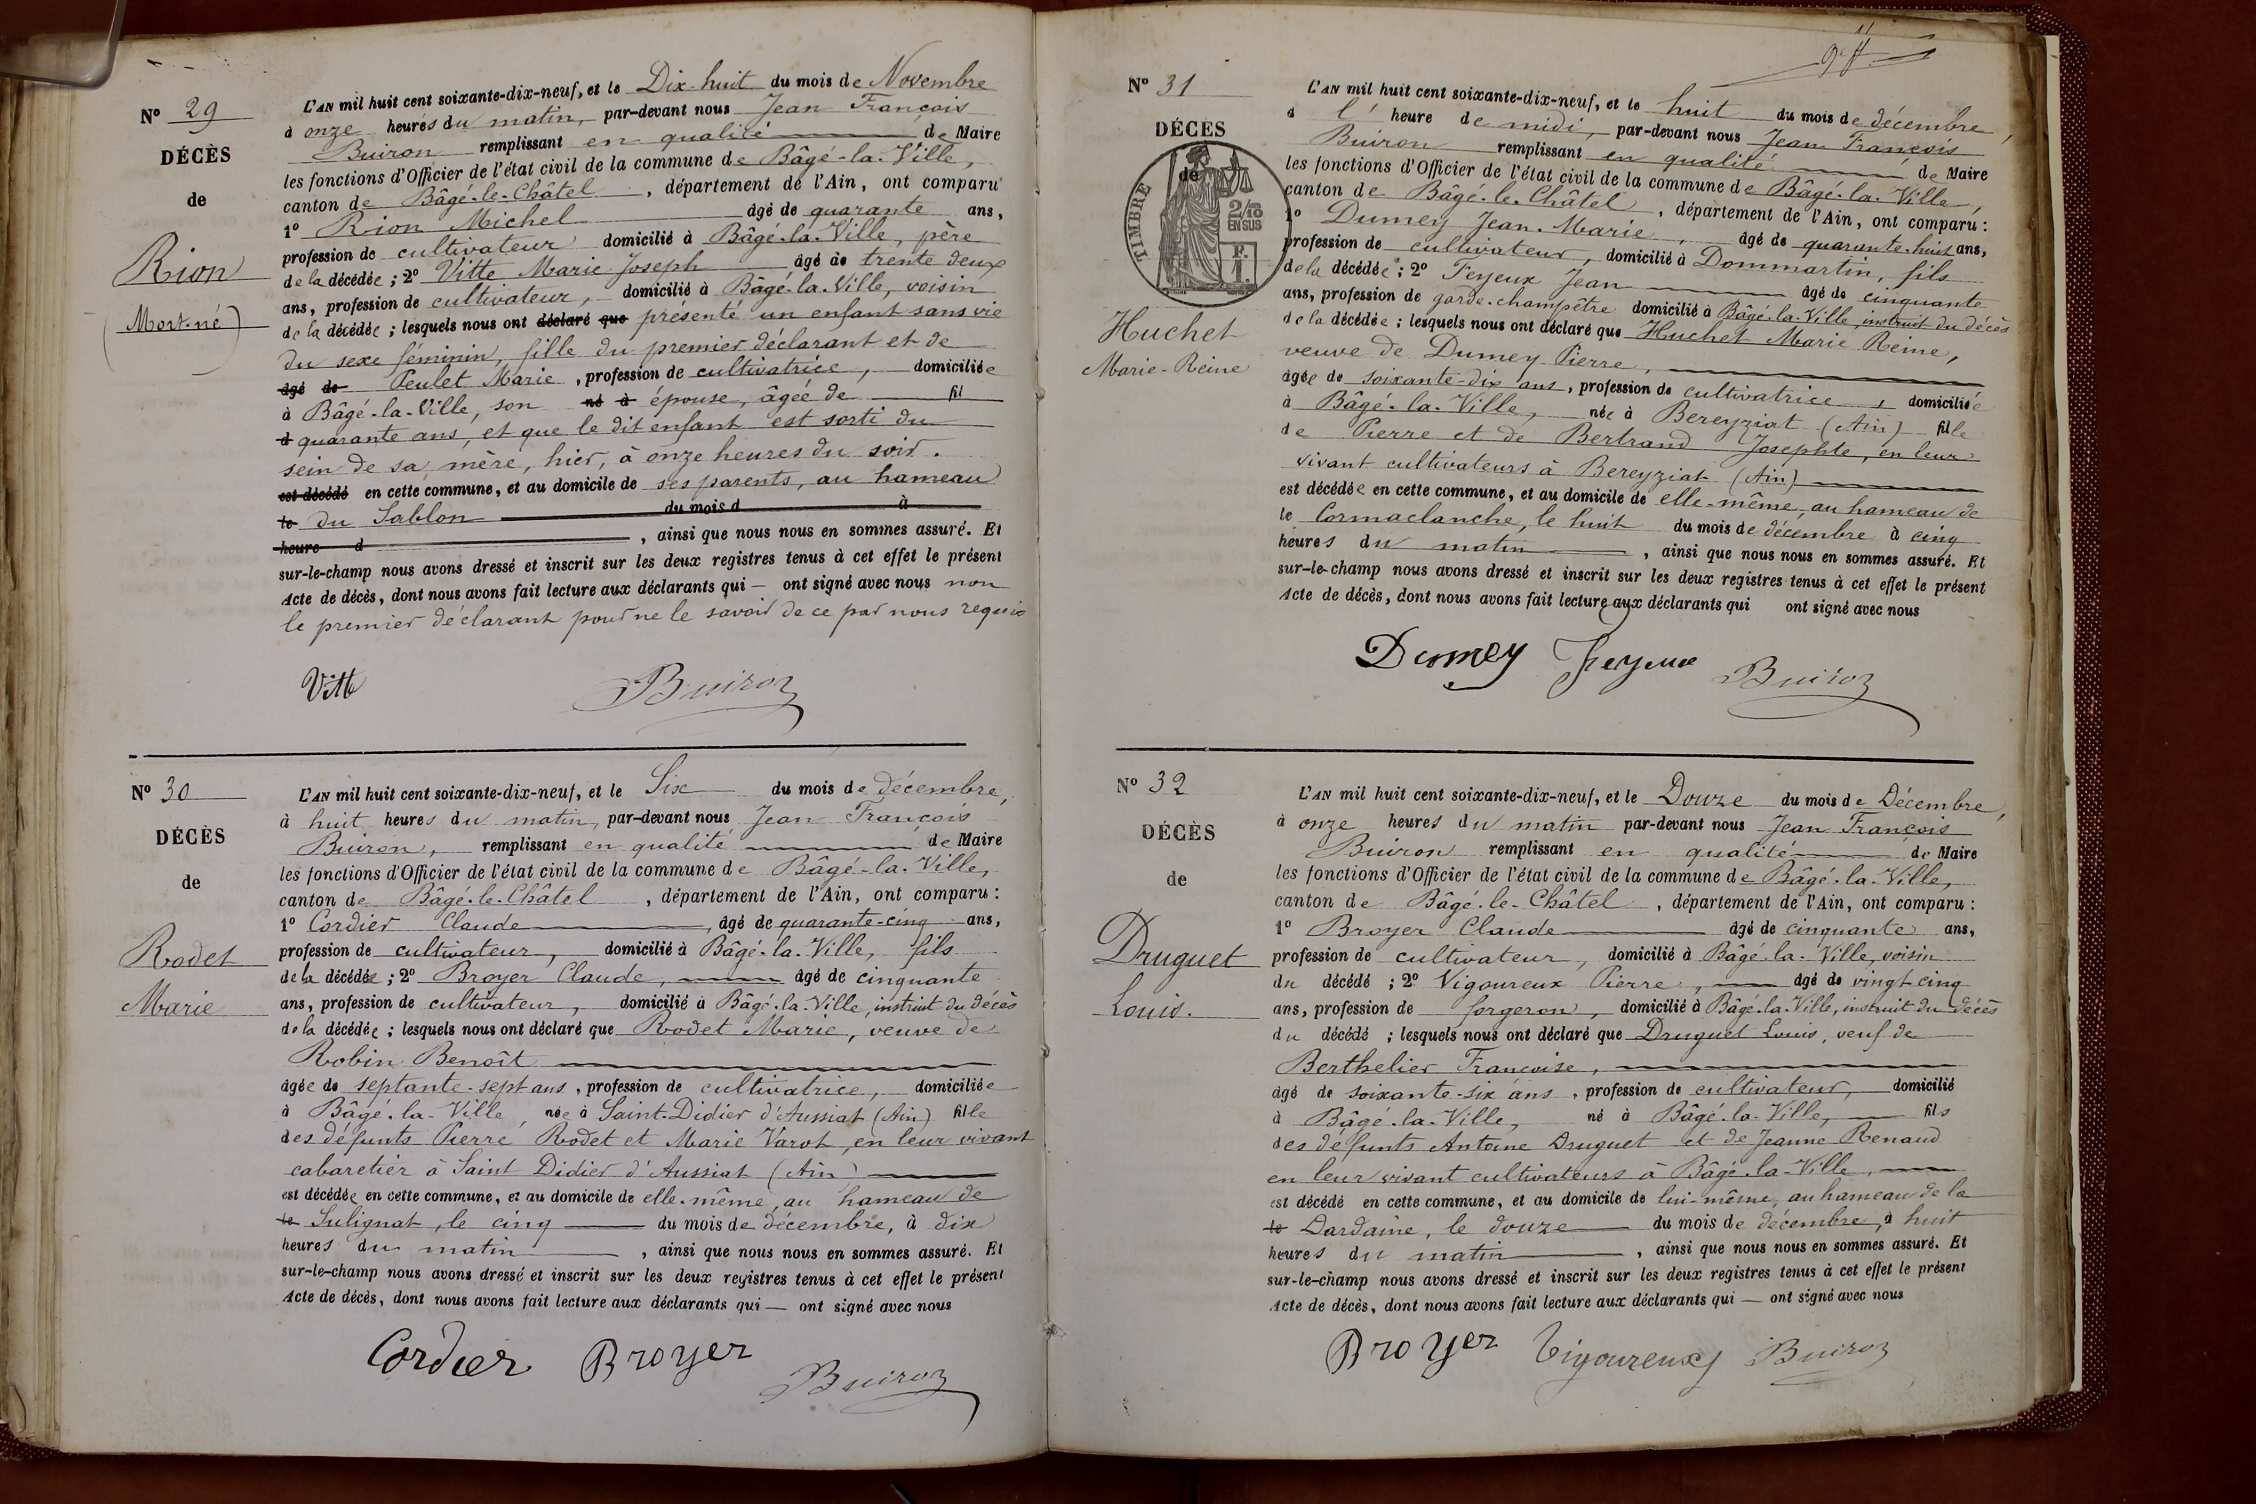 Nº 29
DÉCÈS
de
Rion
(Mort-né)
L'AN mil huit cent soixante-dix-neuf, et le Dix-huit du mois de Novembre
à onze heures du matin, par-devant nous Jean François
Buiron remplissant en qualité de Maire
les fonctions d'Officier de l'état civil de la commune de Bâgé-la-Ville,
canton de Bâgé-le-Châtel, département de l'Ain, ont comparu
1º Rion Michel âgé de quarante ans,
profession de cultivateur domicilié à Bâgé-la-Ville, père
de la décédée ; 2º Vitte Marie Joseph âgé de trente deux
ans, profession de cultivateur, domicilié à Bâgé-la-Ville, voisin
de la décédée ; lesquels nous ont déclaré que présenté un enfant sans vie
du sexe féminin, fille du premier déclarant et de
âgé de Peulet Marie, profession de cultivatrice, domiciliée
à Bâgé-la-Ville, son né à épouse, âgée de fil
d quarante ans, et que le dit enfant est sorti du
sein de sa mère, hier, à onze heures du soir.
est décédé en cette commune, et au domicile de ses parents, au hameau
le du Sablon du mois d à
heure d , ainsi que nous nous en sommes assuré. Et
sur-le-champ nous avons dressé et inscrit sur les deux registres tenus à cet effet le présent
Acte de décès, dont nous avons fait lecture aux déclarants qui — ont signé avec nous non
le premier déclarant pour ne le savoir de ce par nous requis
Vitte Buiron
Nº 30
DÉCÈS
de
Rodet
Marie
L'AN mil huit cent soixante-dix-neuf, et le Six du mois de décembre,
à huit heures du matin, par-devant nous Jean François
Buiron, remplissant en qualité de Maire
les fonctions d'Officier de l'état civil de la commune de Bâgé-la-Ville,
canton de Bâgé-le-Châtel, département de l'Ain, ont comparu :
1º Cordier Claude, âgé de quarante-cinq ans,
profession de cultivateur, domicilié à Bâgé-la-Ville, fils
de la décédée ; 2º Broyer Claude, âgé de cinquante
ans, profession de cultivateur, domicilié à Bâgé-la-Ville, instruit du décès
de la décédée ; lesquels nous ont déclaré que Rodet Marie, veuve de
Robin Benoît
âgée de septante-sept ans, profession de cultivatrice, domiciliée
à Bâgé-la-Ville née à Saint-Didier d'Aussiat (Ain) fille
des défunts Pierre Rodet et Marie Varot, en leur vivant
cabaretier à Saint Didier d'Aussiat (Ain)
est décédée en cette commune, et au domicile de elle-même, au hameau de
le Sulignat, le cinq du mois de décembre, à dix
heures du matin, ainsi que nous nous en sommes assuré. Et
sur-le-champ nous avons dressé et inscrit sur les deux registres tenus à cet effet le présent
Acte de décès, dont nous avons fait lecture aux déclarants qui — ont signé avec nous
Cordier Broyer Buiron
Nº 31
DÉCÈS
de
TIMBRE
2/10
EN SUS
F.
1
Huchet
Marie-Reine
L'AN mil huit cent soixante-dix-neuf, et le huit du mois de décembre,
à l' heure de midi, par-devant nous Jean François
Buiron remplissant en qualité de Maire
les fonctions d'Officier de l'état civil de la commune de Bâgé-la-Ville,
canton de Bâgé-le-Châtel, département de l'Ain, ont comparu :
1º Dumey Jean-Marie, âgé de quarante-huit ans,
profession de cultivateur, domicilié à Dommartin, fils
de la décédée ; 2º Feyeux Jean âgé de cinquante
ans, profession de garde-champêtre domicilié à Bâgé-la-Ville, instruit du décès
de la décédée ; lesquels nous ont déclaré que Huchet Marie Reine,
veuve de Dumey Pierre,
âgée de soixante-dix ans, profession de cultivatrice, domiciliée
à Bâgé-la-Ville, née à Bereyziat (Ain) fille
de Pierre et de Bertrand Josephte, en leur
vivant cultivateurs à Bereyziat (Ain)
est décédée en cette commune, et au domicile de elle-même, au hameau de
le Cormaclanche, le huit du mois de décembre à cinq
heures du matin, ainsi que nous nous en sommes assuré. Et
sur-le-champ nous avons dressé et inscrit sur les deux registres tenus à cet effet le présent
Acte de décès, dont nous avons fait lecture aux déclarants qui ont signé avec nous
Dumey Feyeux Buiron
Nº 32
DÉCÈS
de
Druguet
Louis.
L'AN mil huit cent soixante-dix-neuf, et le Douze du mois de Décembre,
à onze heures du matin par-devant nous Jean François
Buiron remplissant en qualité de Maire
les fonctions d'Officier de l'état civil de la commune de Bâgé-la-Ville,
canton de Bâgé-le-Châtel, département de l'Ain, ont comparu :
1º Broyer Claude âgé de cinquante ans,
profession de cultivateur, domicilié à Bâgé-la-Ville, voisin
du décédé ; 2º Vigoureux Pierre, âgé de vingt cinq
ans, profession de forgeron, domicilié à Bâgé-la-Ville, instruit du décès
du décédé ; lesquels nous ont déclaré que Druguet Louis, veuf de
Berthelier Françoise,
âgé de soixante-six ans, profession de cultivateur, domicilié
à Bâgé-la-Ville, né à Bâgé-la-Ville, fils
des défunts Antoine Druguet et de Jeanne Renaud
en leur vivant cultivateurs à Bâgé-la-Ville,
est décédé en cette commune, et au domicile de lui-même, au hameau de la
le Dardaine, le douze du mois de décembre, à huit
heures du matin, ainsi que nous nous en sommes assuré. Et
sur-le-champ nous avons dressé et inscrit sur les deux registres tenus à cet effet le présent
Acte de décès, dont nous avons fait lecture aux déclarants qui — ont signé avec nous
Broyer Vigoureux Buiron